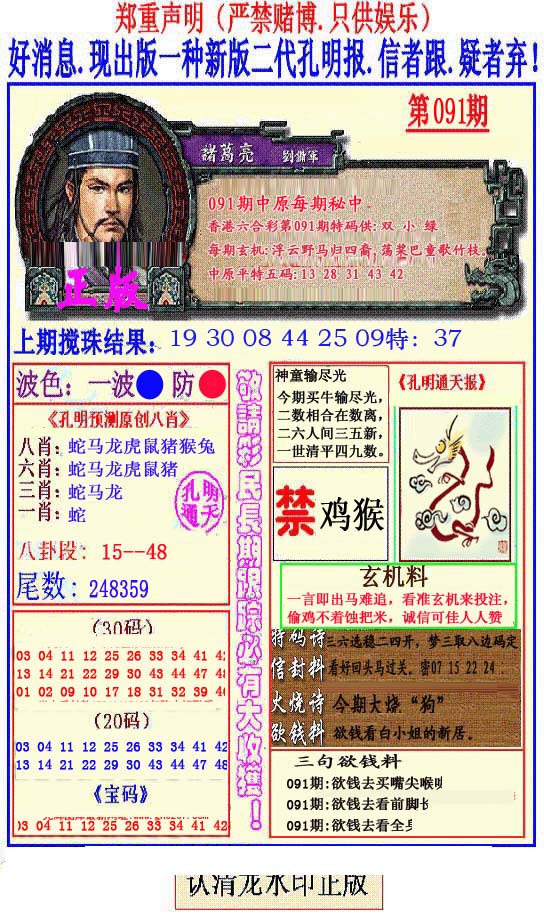 郑重声明（严禁赌博.只供娱乐）
好消息.现出版一种新版二代孔明报.信者跟.疑者弃!
第091期
諸葛亮 劉備軍
091期中原每期秘中.
香港六合彩第091期特码供: 双 小 绿
每期玄机:浮云野马归四裔,荡桨巴童歌竹枝。
中原平特五码: 13 28 31 43 42
正版
上期搅珠结果: 19 30 08 44 25 09特: 37
波色: 一波 防
《孔明预测原创八肖》
八肖: 蛇马龙虎鼠猪猴兔
六肖: 蛇马龙虎鼠猪
三肖: 蛇马龙
一肖: 蛇
孔明通天
八卦段: 15--48
尾数: 248359
(30码)
03 04 11 12 25 26 33 34 41 42
13 14 21 22 29 30 43 44 47 48
01 02 09 10 17 18 31 32 39 40
(20码)
03 04 11 12 25 26 33 34 41 42
13 14 21 22 29 30 43 44 47 48
《宝码》
03 04 11 12 25 26 33 34 41 42
敬請彩民長期跟踪必有大收獲！
神童输尽光
今期买牛输尽光,
二数相合在数离,
二六人间三五新,
一世清平四九数。
《孔明通天报》
禁 鸡猴
玄机料
一言即出马难追，看准玄机来投注,
偷鸡不着蚀把米，诚信可佳人人赞
特码诗 三六选稳二四开，梦三取八边码定
信封料 看好回头马过关。密07 15 22 24 .
火烧诗 今期大烧“狗”
欲钱料 欲钱看白小姐的新居。
三句欲钱料
091期:欲钱去买嘴尖喉
091期:欲钱去看前脚长
091期:欲钱去看全身
认清龙水印正版